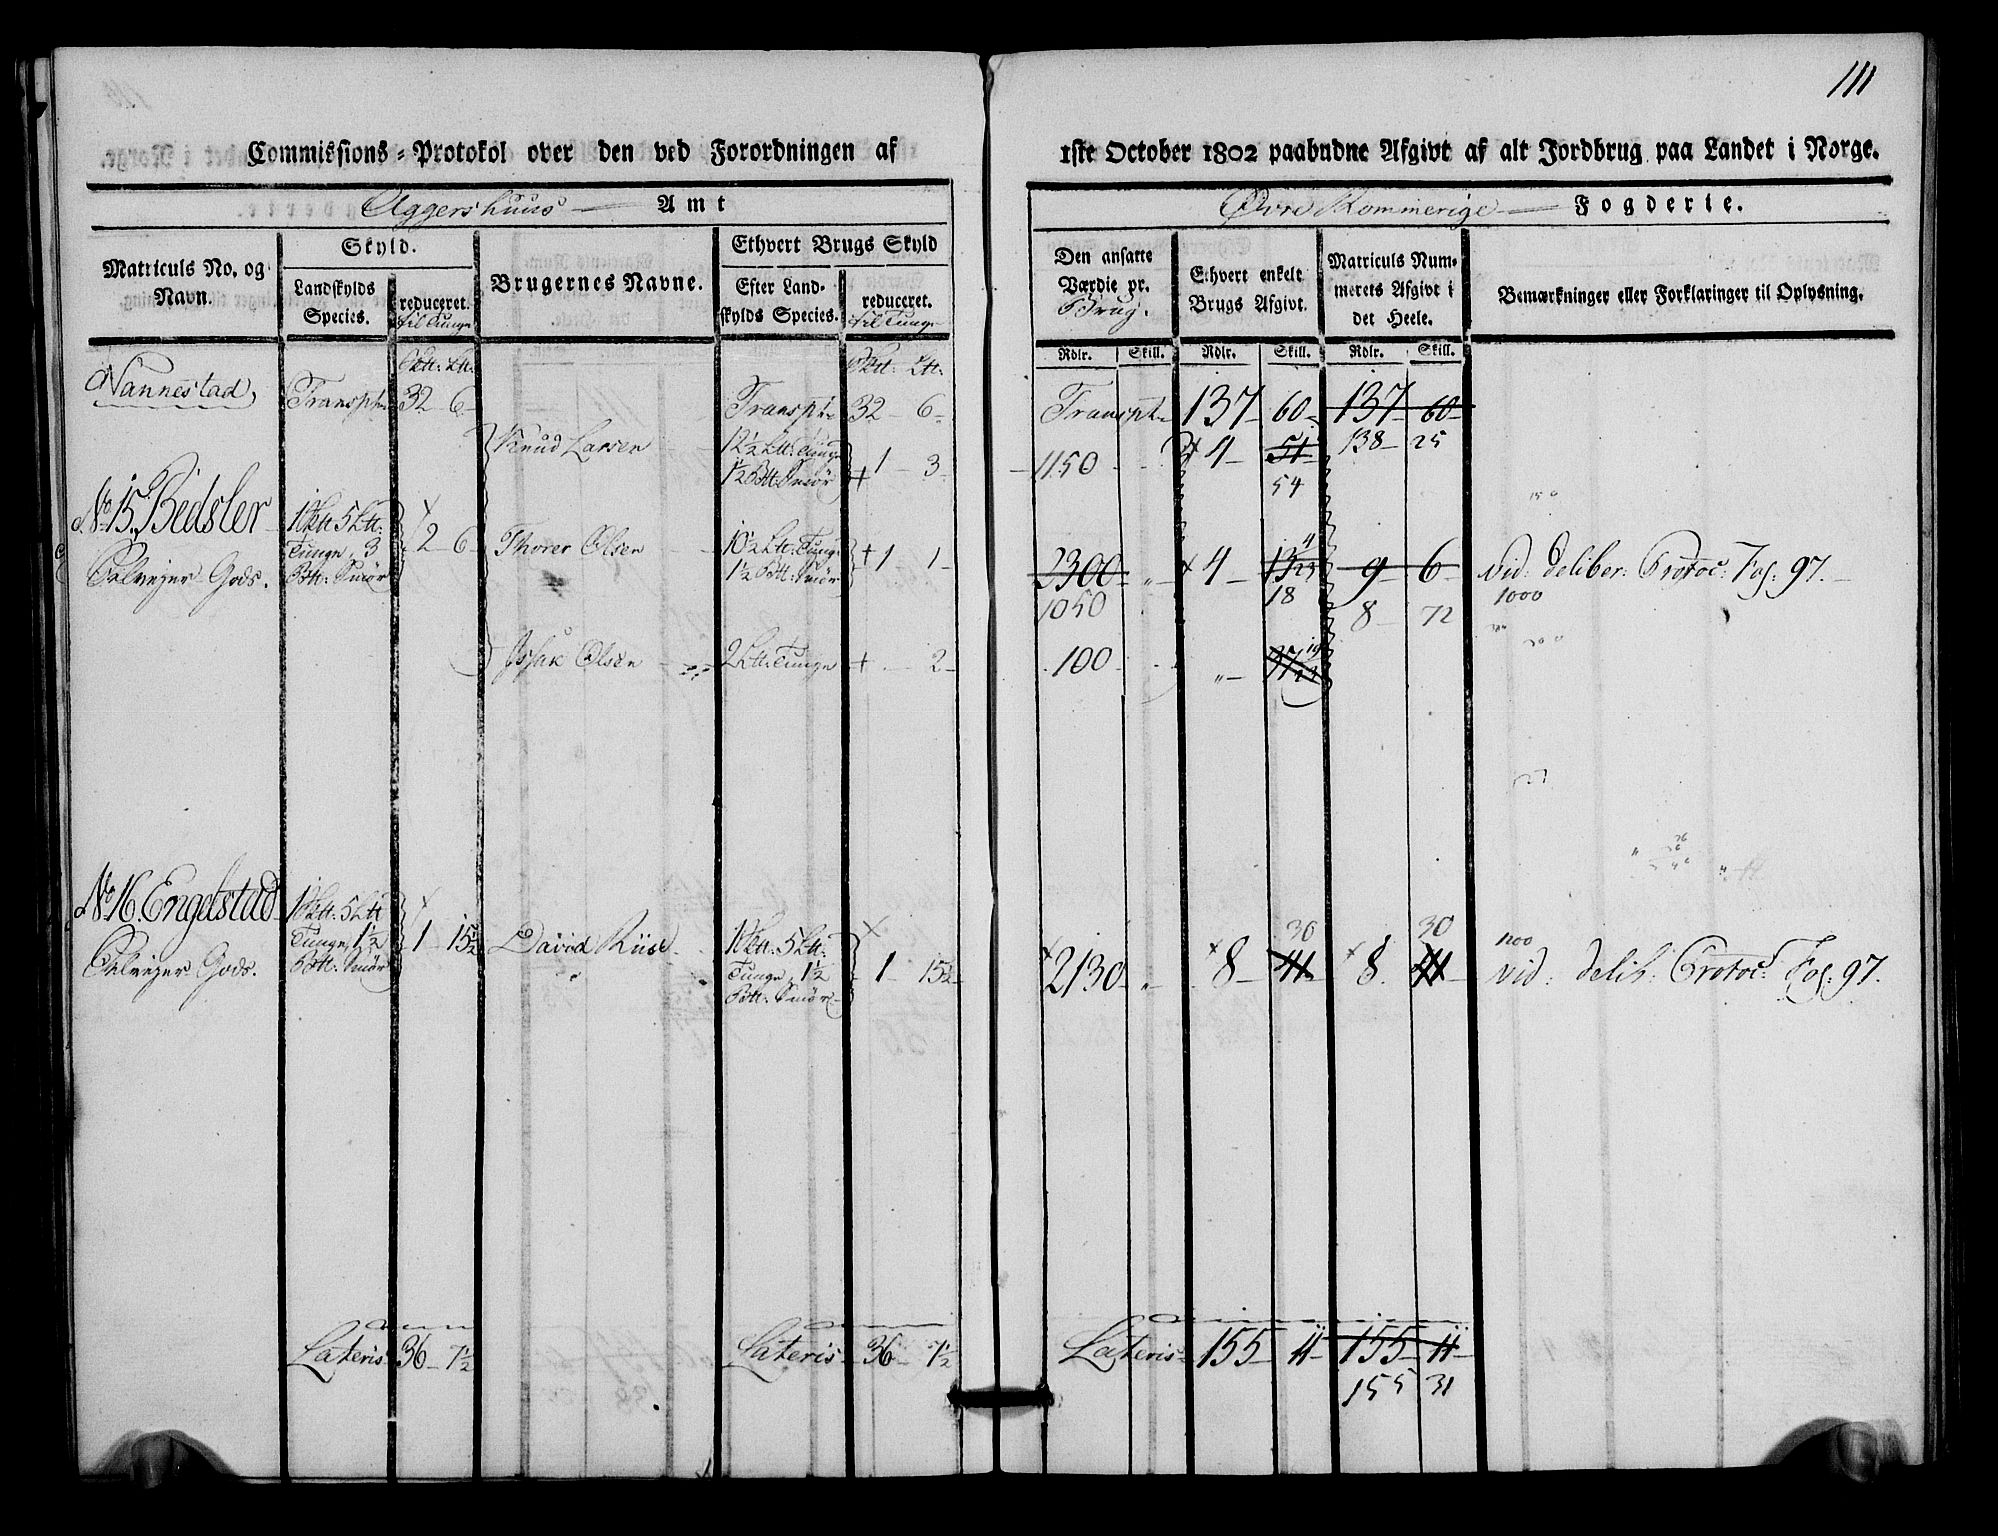 111
Commissions-Protokol over den ved Forordningen af 1ste October 1802 paabudne Afgivt af alt Jordbrug paa Landet i Norge.
Aggershuus Amt
Øvre Rommerige Fogderie.
Matriculs No. og Navn.
Skyld.
Landskylds Species.
reduceret. til Tunge
Brugernes Navne.
Ethvert Brugs Skyld
Efter Landskylds Species.
reduceret. til Tunge
Den ansatte Værdie pr. Brug.
Ethvert enkelt Brugs Afgivt.
Matriculs Nummerets Afgivt i det Heele.
Bemærkninger eller Forklaringer til Oplysning.
Rdlr. Skill. Rdlr. Skill. Rdlr. Skill.
Nannestad, Transpt 32 6 Transpt 32 6 Transpt 137 60 137 60
138 25
Knud Larsen 12½ Ltt: Tunge 1½ Btt: Smør 1 3 1150 4 51
54
No 15. Bedsler 1 Skt 5 Ltt: Tunge, 3 Btt: Smør 2 6 Thorer Olsen 10½ Ltt: Tunge 1½ Btt: Smør 1 1 2300 4 13 9 6 vid: deliber: Protoc: Fol: 97.
Gods. 1050 18 8 72 1000
Isak Olsen 2 Ltt: Tunge 2 100
No 16. Engelstad 1 Skt: 5 Ltt Tunge, 1½ Btt: Smør 1 15½ David Riise 1 Skt: 5 Ltt: Tunge, 1½ Btt: Smør 1 15½ 2130 8 41 8 41 vid: delib: Protoc: Fol: 97.
Gods. 30 30 1200
Lateris 36 7½ Lateris 36 7½ Lateris 155 11 155 11
155 31